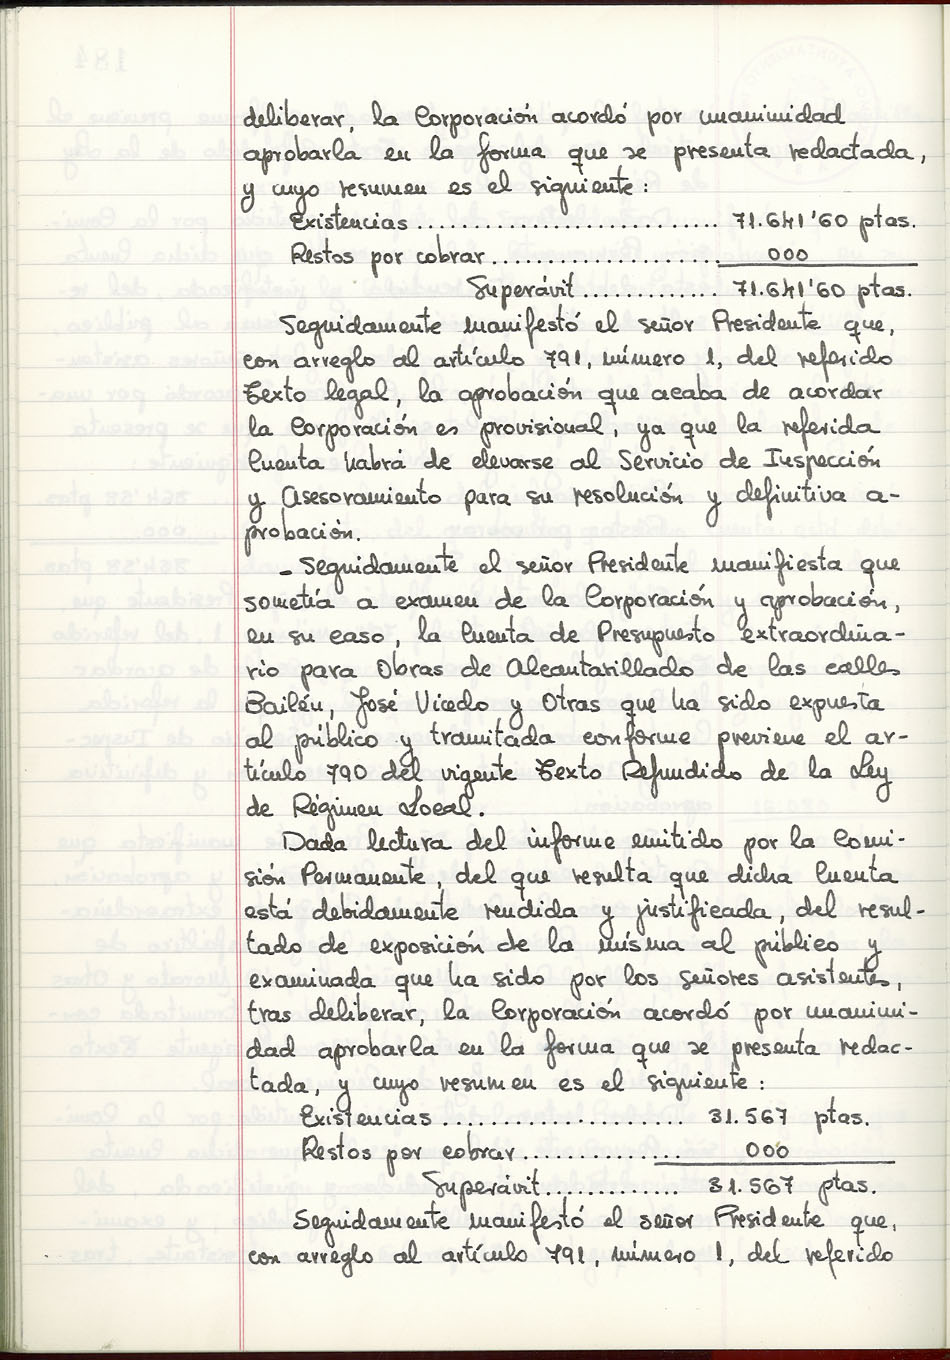 deliberar, la Corporación acordó por unanimidad
aprobarla en la forma que se presenta redactada,
y cuyo resumen es el siguiente:
Existencias .............................. 71.641'60 ptas.
Restos por cobrar....................... 000
Superávit............. 71.641'60 ptas.
Seguidamente manifestó el señor Presidente que,
con arreglo al artículo 791, número 1, del referido
Texto legal, la aprobación que acaba de acordar
la Corporación es provisional, ya que la referida
Cuenta habrá de elevarse al Servicio de Inspección
y Asesoramiento para su resolución y definitiva a-
probación.
- Seguidamente el señor Presidente manifiesta que
sometía a examen de la Corporación y aprobación,
en su caso, la Cuenta de Presupuesto extraordina-
rio para Obras de Alcantarillado de las calles
Bailén, José Vicedo y Otras que ha sido expuesta
al público y tramitada conforme previene el ar-
tículo 790 del vigente Texto Refundido de la Ley
de Régimen Local.
Dada lectura del informe emitido por la Comi-
sión Permanente, del que resulta que dicha Cuenta
está debidamente rendida y justificada, del resul-
tado de exposición de la misma al público y
examinada que ha sido por los señores asistentes,
tras deliberar, la Corporación acordó por unanimi-
dad aprobarla en la forma que se presenta redac-
tada, y cuyo resumen es el siguiente:
Existencias ....................... 31.567 ptas.
Restos por cobrar............... 000
Superávit............. 31.567 ptas.
Seguidamente manifestó el señor Presidente que,
con arreglo al artículo 791, número 1, del referido